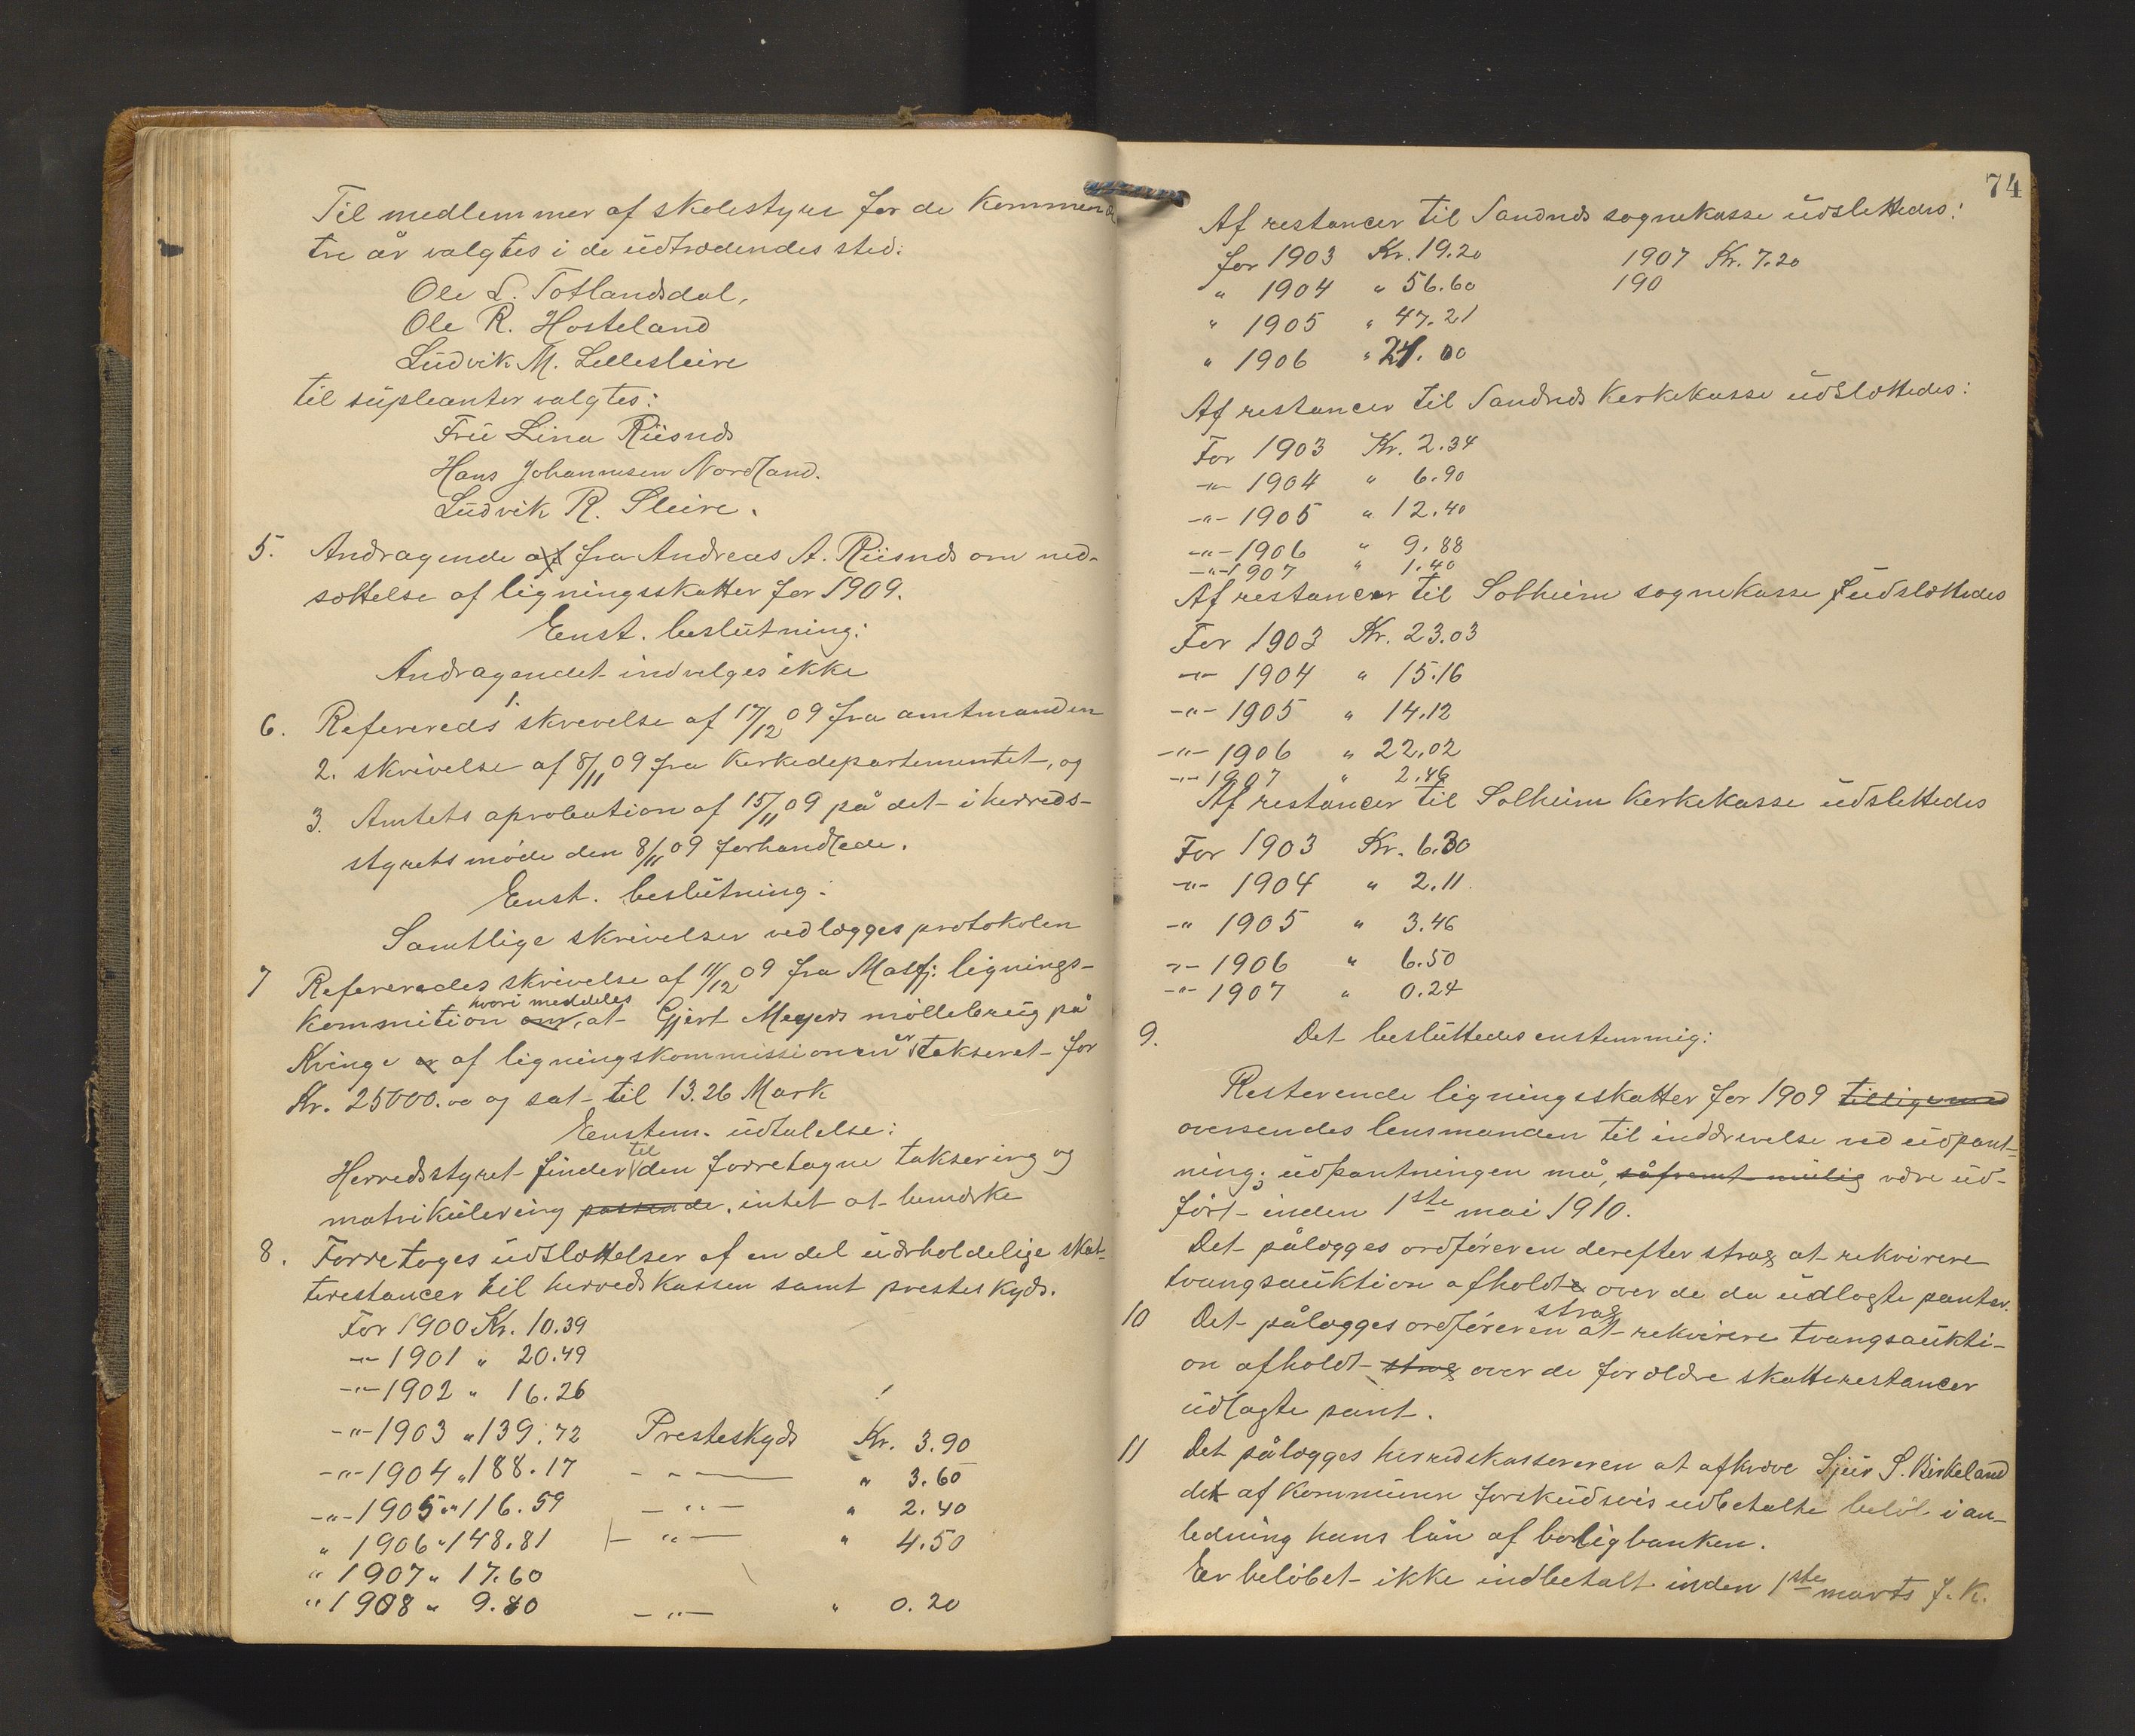 Til medlemmer af skolestyre for de kommende
tre år valgtes i de üdtrædendes sted:
Ole L. Totlandsdal,
Ole R. Hosteland
Lüdvik M. Lellesleire
til süpleanter valgtes:
Frü Lina Riisnæs
Hans Johannesen Nordland.
Lüdvik R. Sleire.
5. Andragende af fra Andreas A. Riisnæs om ned-
sættelse af ligningsskatter for 1909.
Enst. beslütning:
Andragendet indvilges ikke
6. Refereredes 1. skrevelse af 17/12 09 fra amtmanden
2. skrivelse af 8/11 09 fra Kirkedepartementet, og
3. Amtets aprobation af 15/11 09 på det i herreds-
styrets møde den 8/11 09 forhandlede.
Enst. beslütning:
Samtlige skrivelser vedlægges protokolen
7 Refereredes skrivelse af 11/12 09 fra Masfj: lignings-
kommition om, hvori meddeles at Gjert Meyers møllebrüg på
Kvinge er af ligningskommissionen er takseret for
Kr. 25000.00 og sat til 13.26 Mark
Eenstem. üdtalelse:
Herredsstyret finder til den forretagne taksering og
matrikülering passende. intet at bemærke
8. Forretoges üdslættelser af en del üerholdelige skat-
terestancer til herredskassen samt presteskyds.
For 1900 Kr. 10.39
-"- 1901 " 20.49
-"- 1902 " 16.26
-"- 1903 " 139.72 Presteskyds Kr. 3.90
-"- 1904 " 188.17 - " - " 3.60
-"- 1905 " 116.59 - " - " 2.40
" 1906 " 148.81 - " - " 4.50
" 1907 " 17.60
" 1908 " 9.80 - " - " 0.20
74
Af restancer til Sandnæs sognekasse üdslettedes:
for 1903 Kr. 19.20 1907 Kr. 7.20
" 1904 " 56.60 190
" 1905 " 47.21
" 1906 " 24.00
Af restancer til Sandnæs Kerkekasse üdslættedes:
For 1903 Kr. 2.34
-"- 1904 " 6.90
-"- 1905 " 12.40
-"- 1906 " 9.88
-"- 1907 " 1.40
Af restancer til Solheim sognekasse üdslættedes
For 1903 Kr. 23.03
-"- 1904 " 15.16
-"- 1905 " 14.12
-"- 1906 " 22.02
-"- 1907 " 2.46
Af restancer til Solheim Kerkekasse üdslettedes
For 1903 Kr. 6.30
-"- 1904 " 2.11
-" 1905 " 3.46
-"- 1906 " 6.50
-"- 1907 " 0.24
9. Det beslüttedes enstemmig:
Resterende ligningsskatter for 1909 tilligemed
oversendes lensmanden til inddrivelse ved üdpant-
ning; üdpantningen må, såfremt mülig være üd-
ført inden 1ste mai 1910.
Det pålægges ordføreren derefter strax at rekvirere
tvangsaüktion afholdte over de da üdlagte panter.
10 Det pålægges ordføreren strax at rekvirere tvangsaükti-
on afholdt strax over de for ældre skatterestancer
üdlagte pant.
11 Det pålægges herredskassereren at afkræve Sjür S. Birkeland
det af Kommünen forsküdsvis üdbetalte beløb i an-
ledning hans lån af boligbanken.
Er beløbet ikke indbetalt inden 1ste marts f. k.